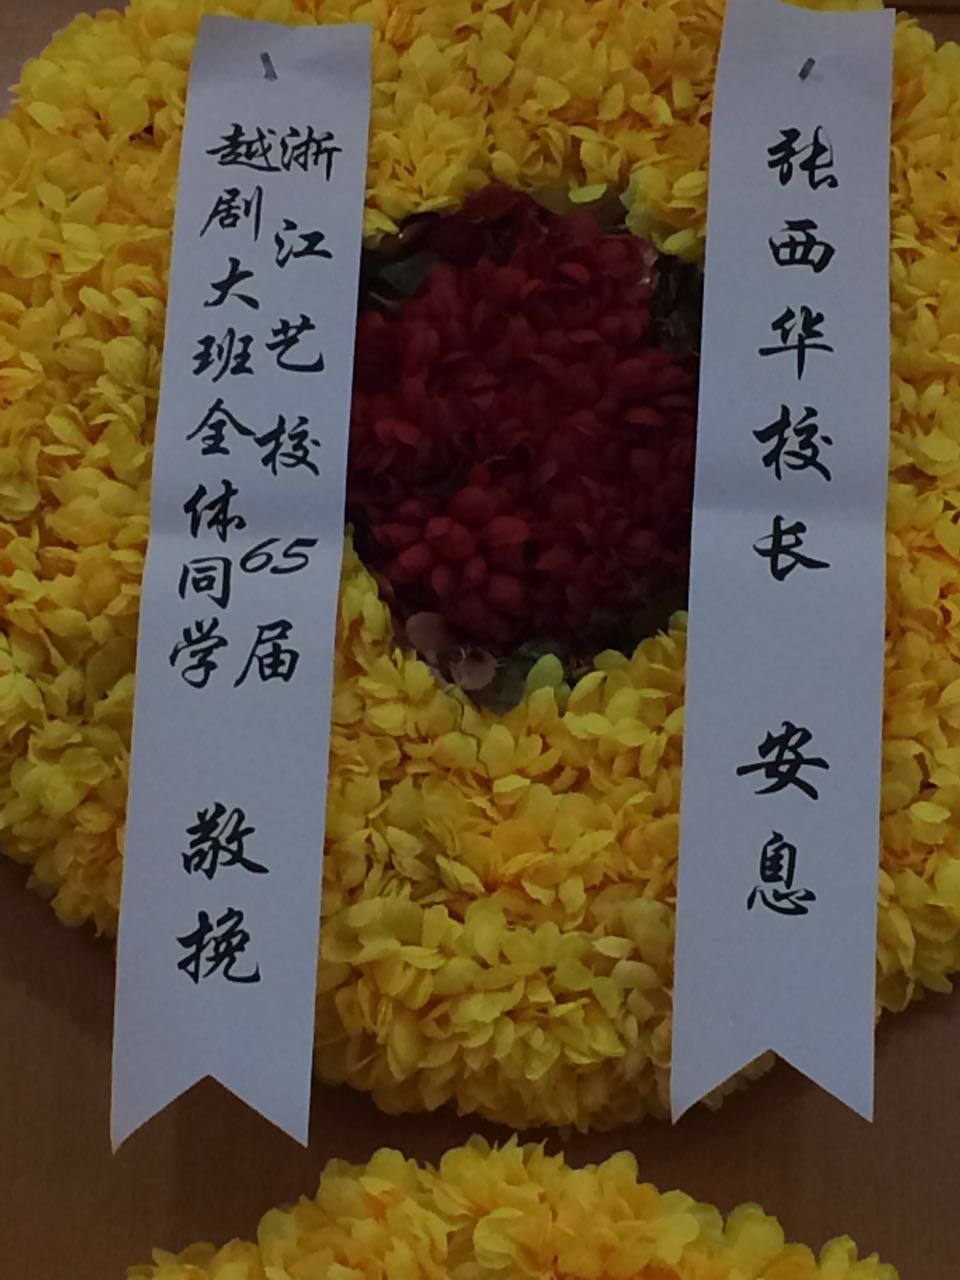 张西华校长 安息
浙江艺校65届
越剧大班全体同学 敬挽